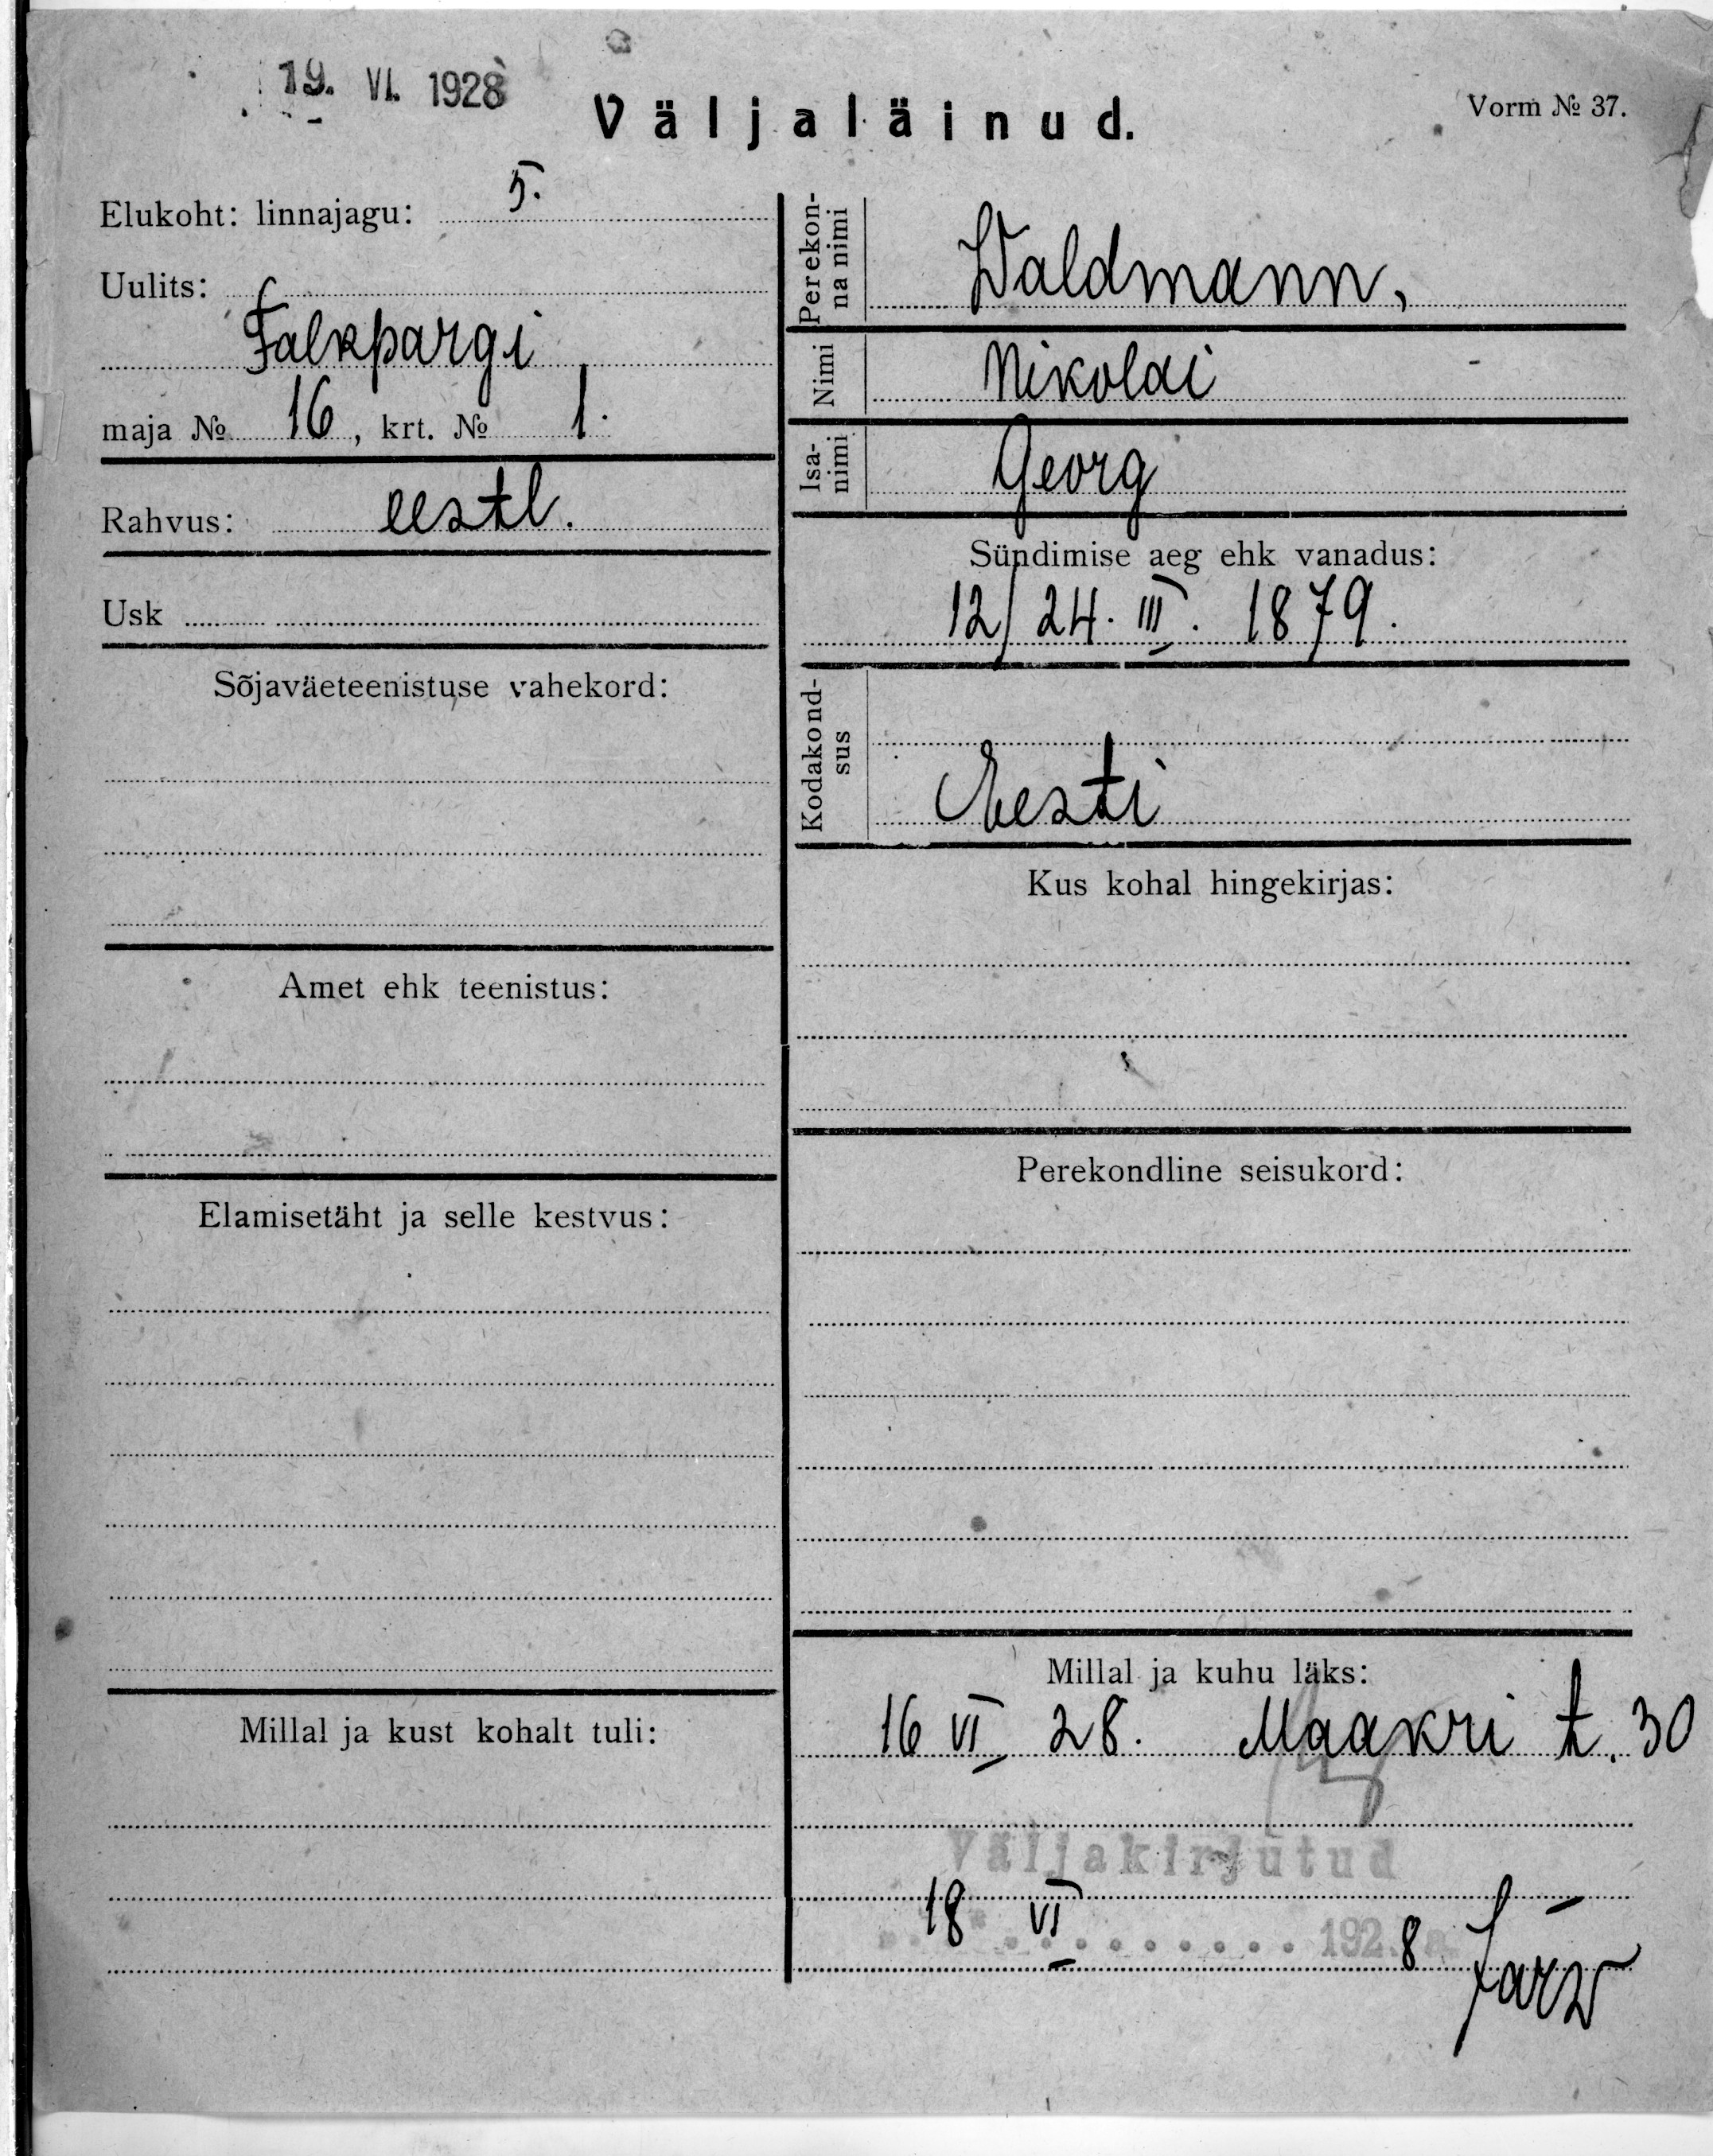 19. VI. 1928
Väljaläinud.
Vorm № 37.
Elukoht: linnajagu: 5.
Uulits:
Falkpargi
maja № 16, krt. № 1.
Rahvus: eestl.
Usk
Sõjaväeteenistuse vahekord:
Amet ehk teenistus:
Elamisetäht ja selle kestvus:
Millal ja kust kohalt tuli:
Perekon-
na nimi
Waldmann,
Nimi Nikolai
Isa-
nimi
Georg
Sündimise aeg ehk vanadus:
12/24. III. 1879.
Kodakond-
sus
Eesti
Kus kohal hingekirjas:
Perekondline seisukord:
Millal ja kuhu läks:
16 VI 28. Maakri t. 30
Väljakirjutud
18 VI 1928 a.